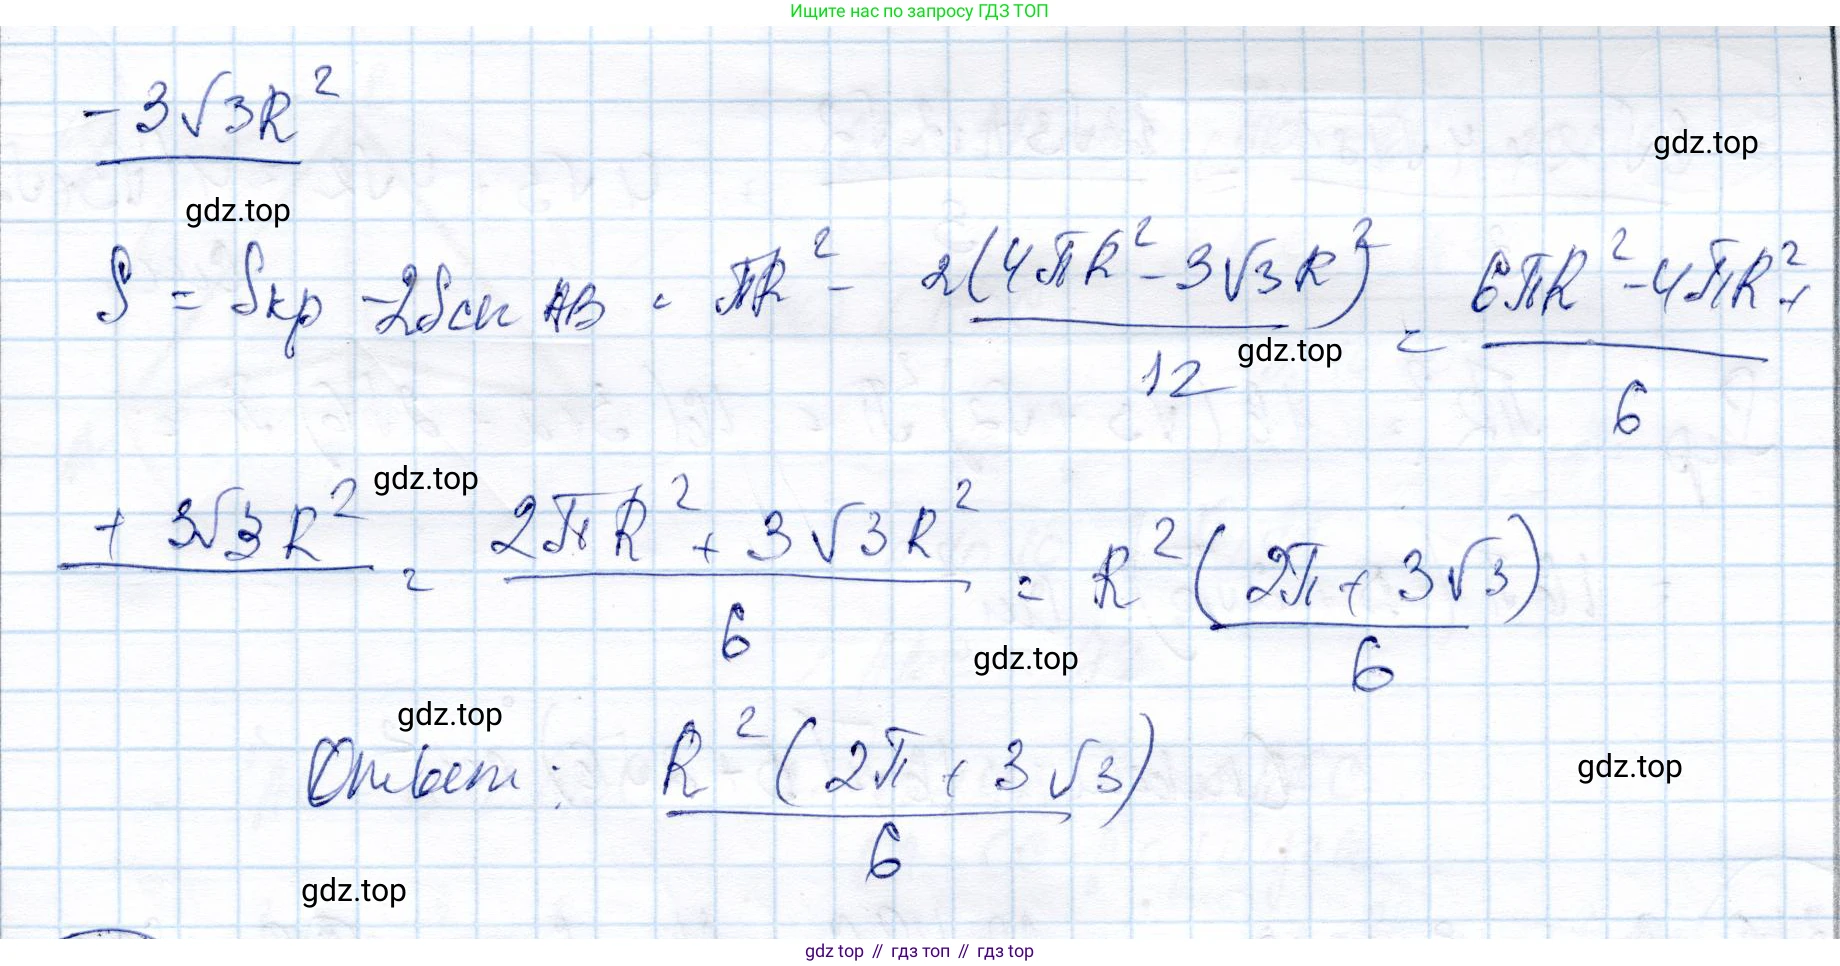 Ищите нас по запросу ГДЗ ТОП
- 3√3R²
gdz.top
gdz.top
S = Sкр - 2Sсег AB = πR² - 2(4πR² - 3√3R²)/12 = 6πR² - 4πR² +/6
gdz.top
+ 3√3R² = 2πR² + 3√3R²/6 = R²(2π + 3√3)/6
gdz.top
gdz.top
gdz.top
Ответ: R²(2π + 3√3)/6
gdz.top
gdz.top
gdz top // гдз топ // гдз top